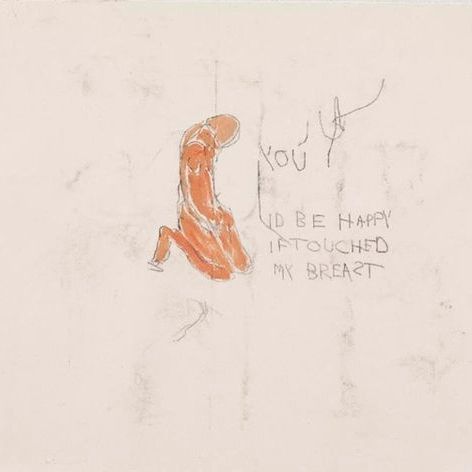 YOU
ID BE HAPPY
IFTOUCHED
MY BREAST